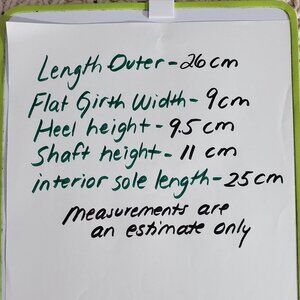 Length Outer - 26cm
Flat Girth Width - 9cm
Heel height - 9.5 cm
Shaft height - 11 cm
interior sole length - 25cm
measurements are
an estimate only